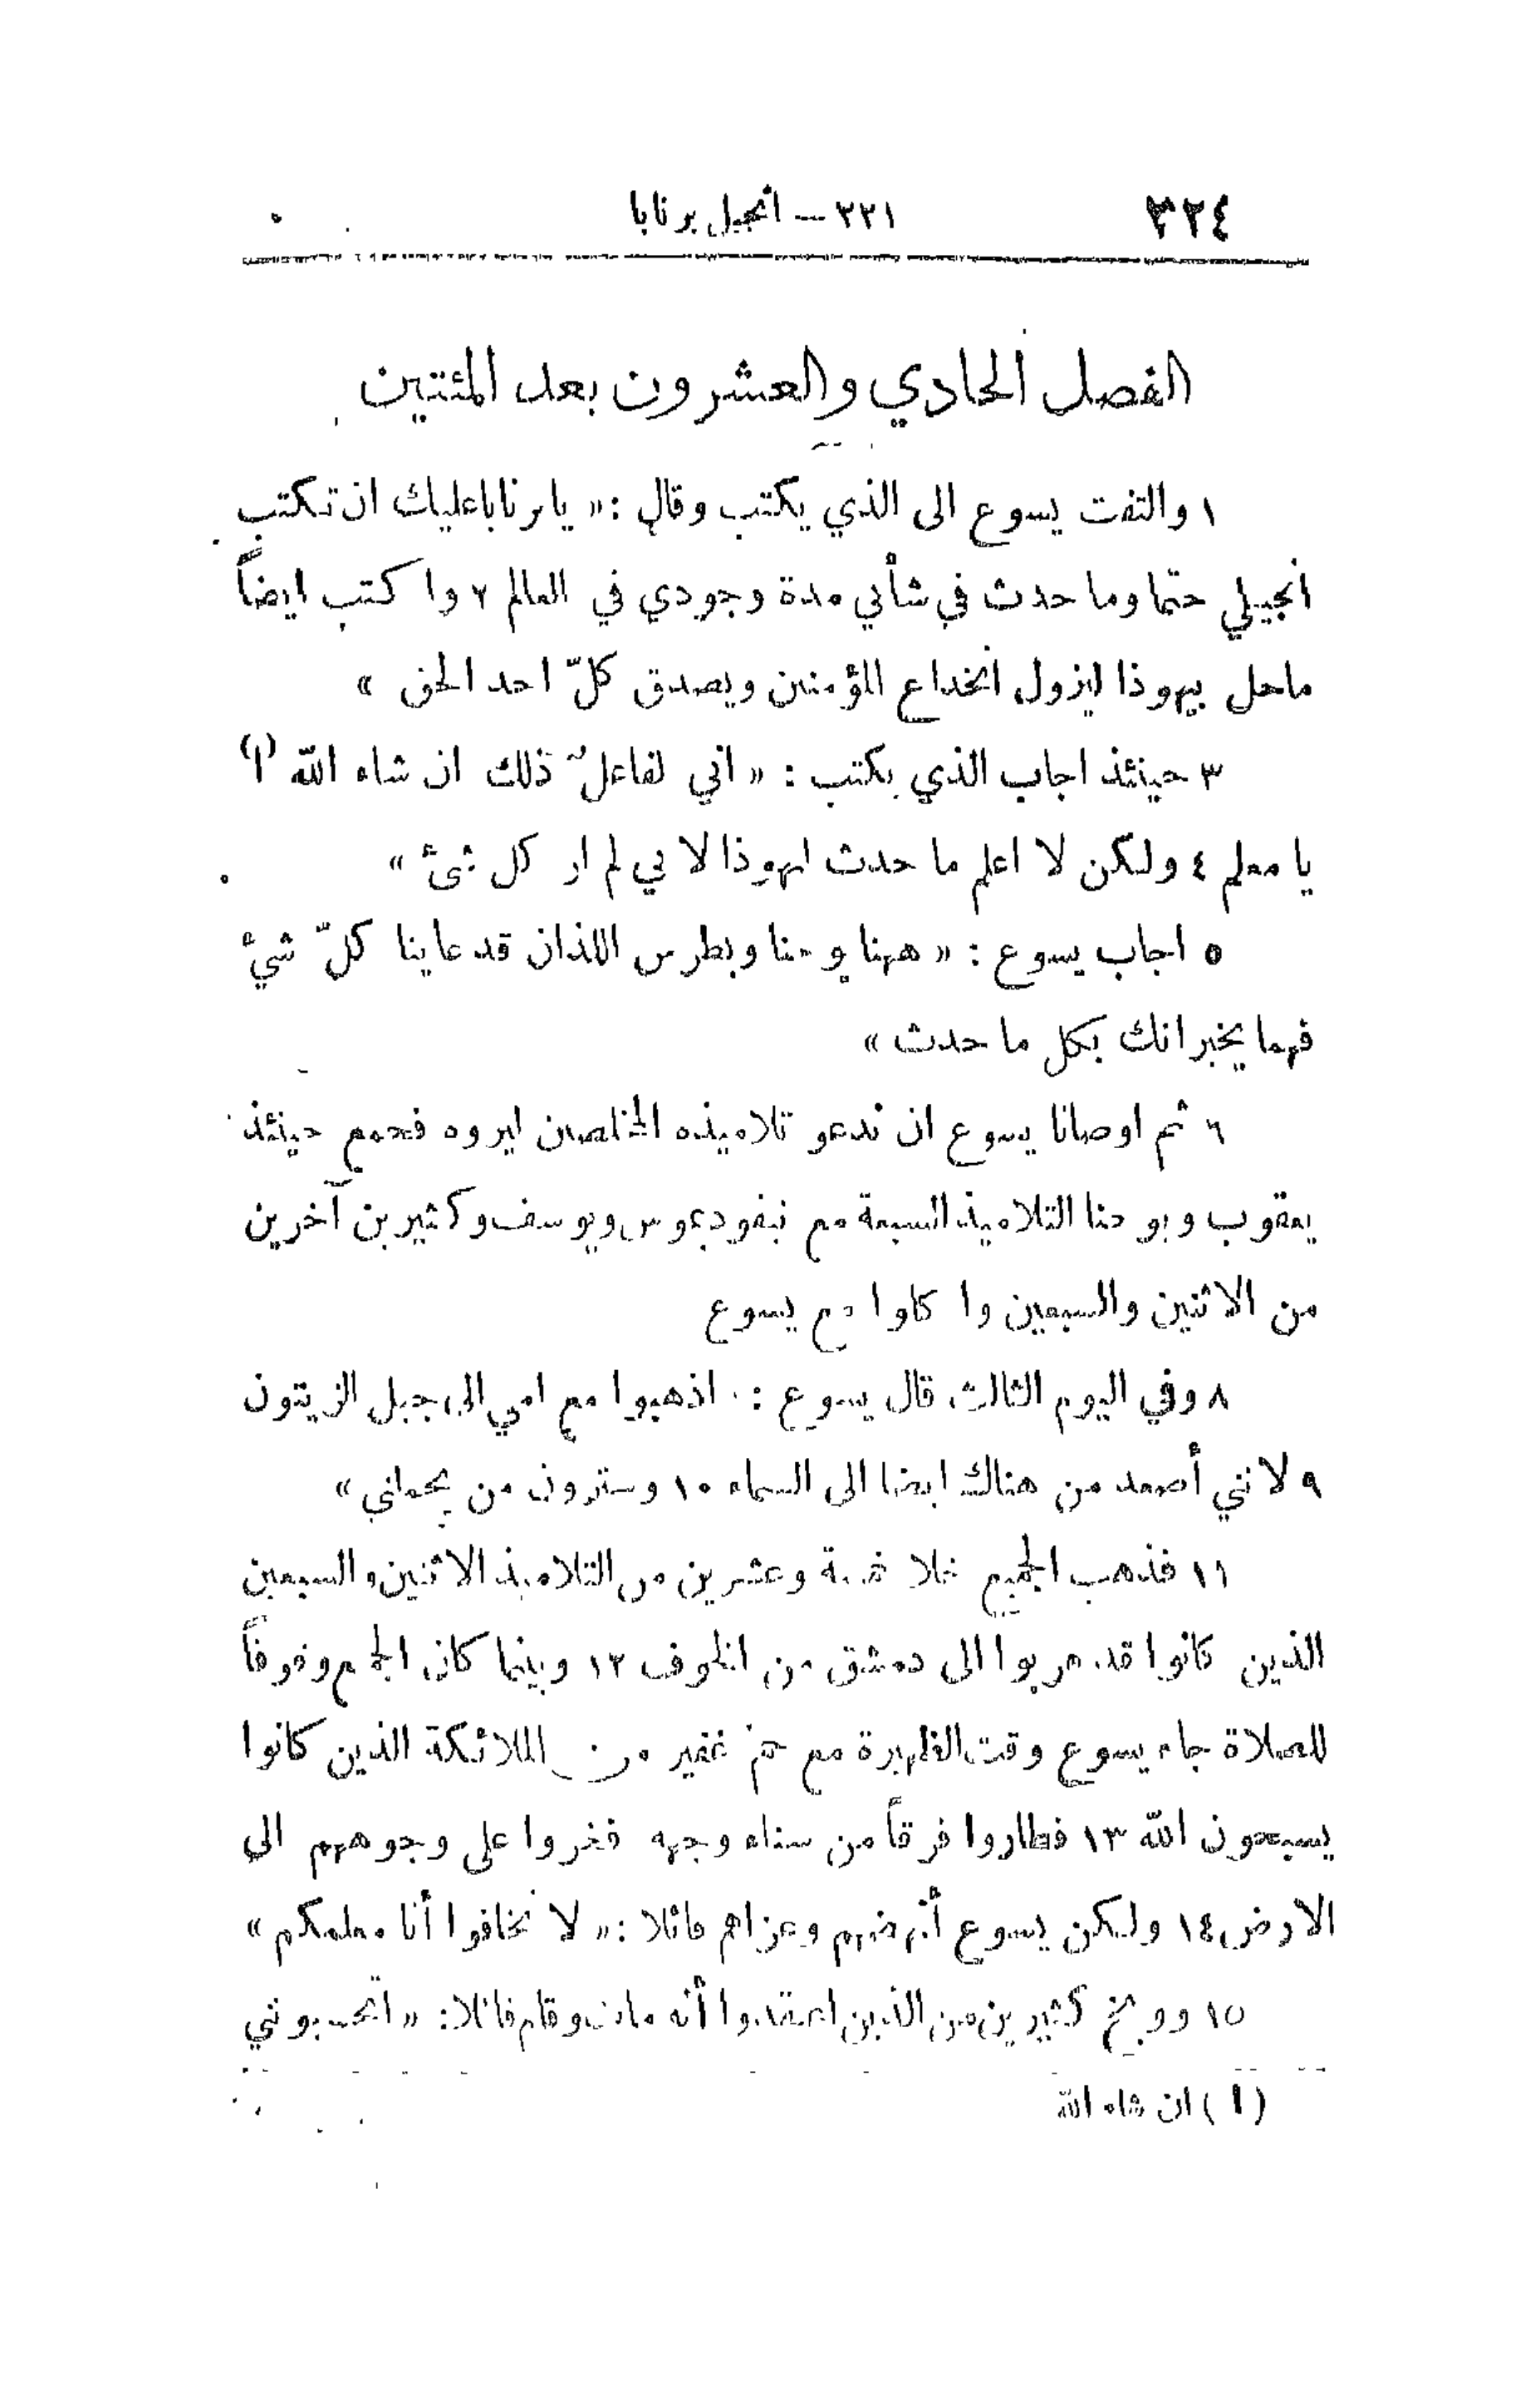 ٣٢٤ ٢٢١ – انجيل برنابا
الفصل الحادي والعشرون بعد المئتين
١ والتفت يسوع الى الذي يكتب وقال : « يا برنابا عليك ان تكتب
انجيلي حتما وما حدث في شأني مدة وجودي في العالم ٢ واكتب ايضاً
ماحل بيهوذا ليزول انخداع المؤمنين ويصدق كلّ احد الحق »
٣ حينئذ اجاب الذي يكتب : « اني لفاعلٌ ذلك ان شاء الله (١)
يا معلم ٤ ولكن لا اعلم ما حدث ليهوذا لاني لم ار كل شئ »
٥ اجاب يسوع : « ههنا يوحنا وبطرس اللذان قد عاينا كلّ شيء
فهما يخبرانك بكل ما حدث »
٦ ثم اوصانا يسوع ان ندعو تلاميذه المخلصين ليروه فجمع حينئذ
يعقوب ويوحنا التلاميذ السبعة مع نيقوديموس ويوسف وكثيرين آخرين
من الاثنين والسبعين واكلوا مع يسوع
٨ وفي اليوم الثالث قال يسوع : اذهبوا مع امي الى جبل الزيتون
٩ لانني أصعد من هناك ايضا الى السماء ١٠ وسترون من يحملني »
١١ فذهب الجميع خلا خمسة وعشرين من التلاميذ الاثنين والسبعين
الذين كانوا قد هربوا الى دمشق من الخوف ١٢ وبينما كان الجمع وقوفاً
للصلاة جاء يسوع وقت الظهيرة مع جم غفير من الملائكة الذين كانوا
يسبحون الله ١٣ فطاروا فرقاً من سناء وجهه فخروا على وجوههم الى
الارض ١٤ ولكن يسوع أنهضهم وعزاهم قائلا : « لا تخافوا أنا معلمكم »
١٥ ووبخ كثيرين من الذين اعتقدوا أنه مات وقام قائلا : « اتحسبونني
(١) ان شاء الله